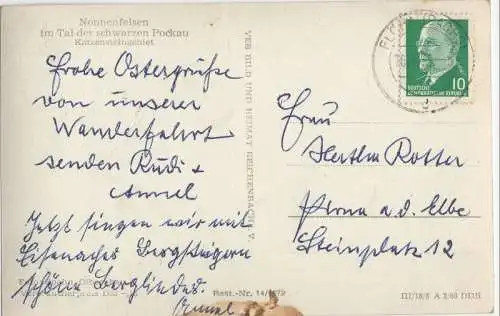 Nonnenfelsen
im Tal der schwarzen Pockau
Katzensteingebiet
Frohe Ostergrüße
von unserer
Wanderfahrt
senden Rudi +
Annel
Jetzt singen wir mit
Eisenacher Bergsteigern
schöne Berglieder.
Annel
VEB BILD UND HEIMAT REICHENBACH i. V.
Best.-Nr. 14/
DEUTSCHE
DEMOKRATISCHE REPUBLIK
10
Frau
Hertha Rotter
Pirna a. d. Elbe
Steinplatz 12
III/18/6 A 2/63 DDR